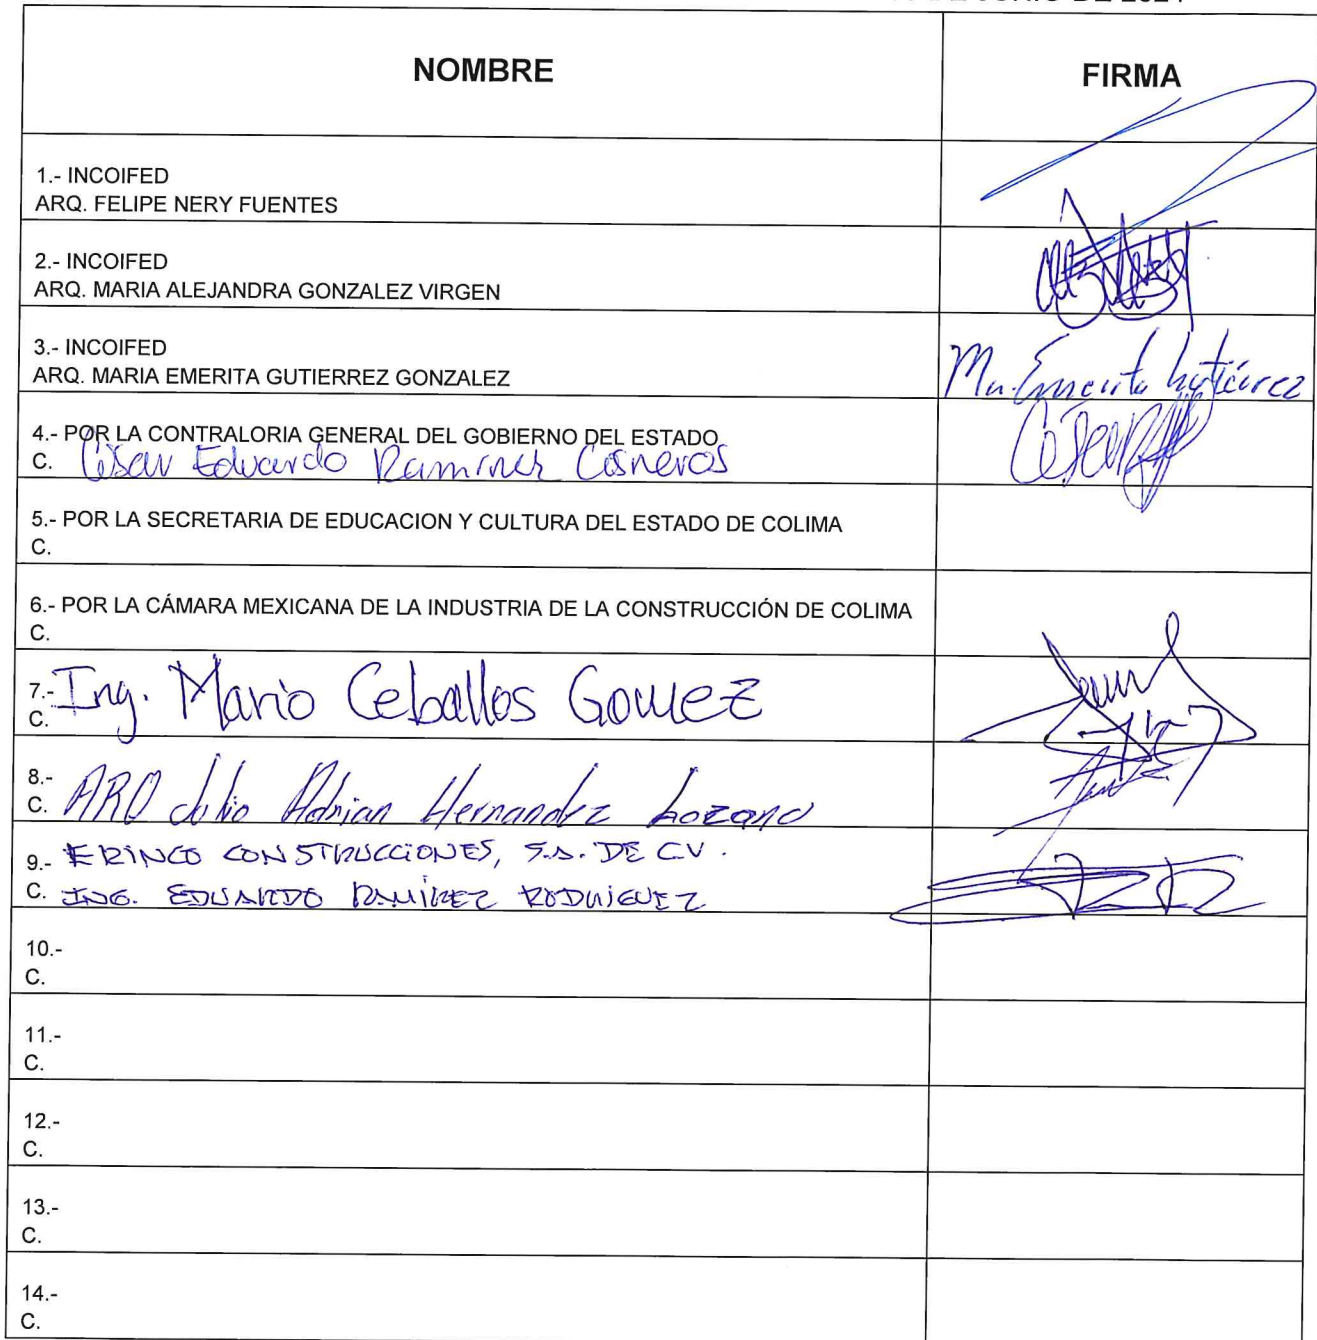 NOMBRE
FIRMA
1.- INCOIFED
ARQ. FELIPE NERY FUENTES
2.- INCOIFED
ARQ. MARIA ALEJANDRA GONZALEZ VIRGEN
3.- INCOIFED
ARQ. MARIA EMERITA GUTIERREZ GONZALEZ
Ma. Emerita Gutiérrez
4.- POR LA CONTRALORIA GENERAL DEL GOBIERNO DEL ESTADO
C. César Eduardo Ramirez Cisneros
5.- POR LA SECRETARIA DE EDUCACION Y CULTURA DEL ESTADO DE COLIMA
C.
6.- POR LA CÁMARA MEXICANA DE LA INDUSTRIA DE LA CONSTRUCCIÓN DE COLIMA
C.
7.- Ing. Mario Ceballos Gomez
C.
8.-
C. ARQ Julio Adrian Hernandez Lozano
9.- ERINCO CONSTRUCCIONES, S.A. DE C.V.
C. ING. EDUARDO RAMÍREZ RODRIGUEZ
10.-
C.
11.-
C.
12.-
C.
13.-
C.
14.-
C.